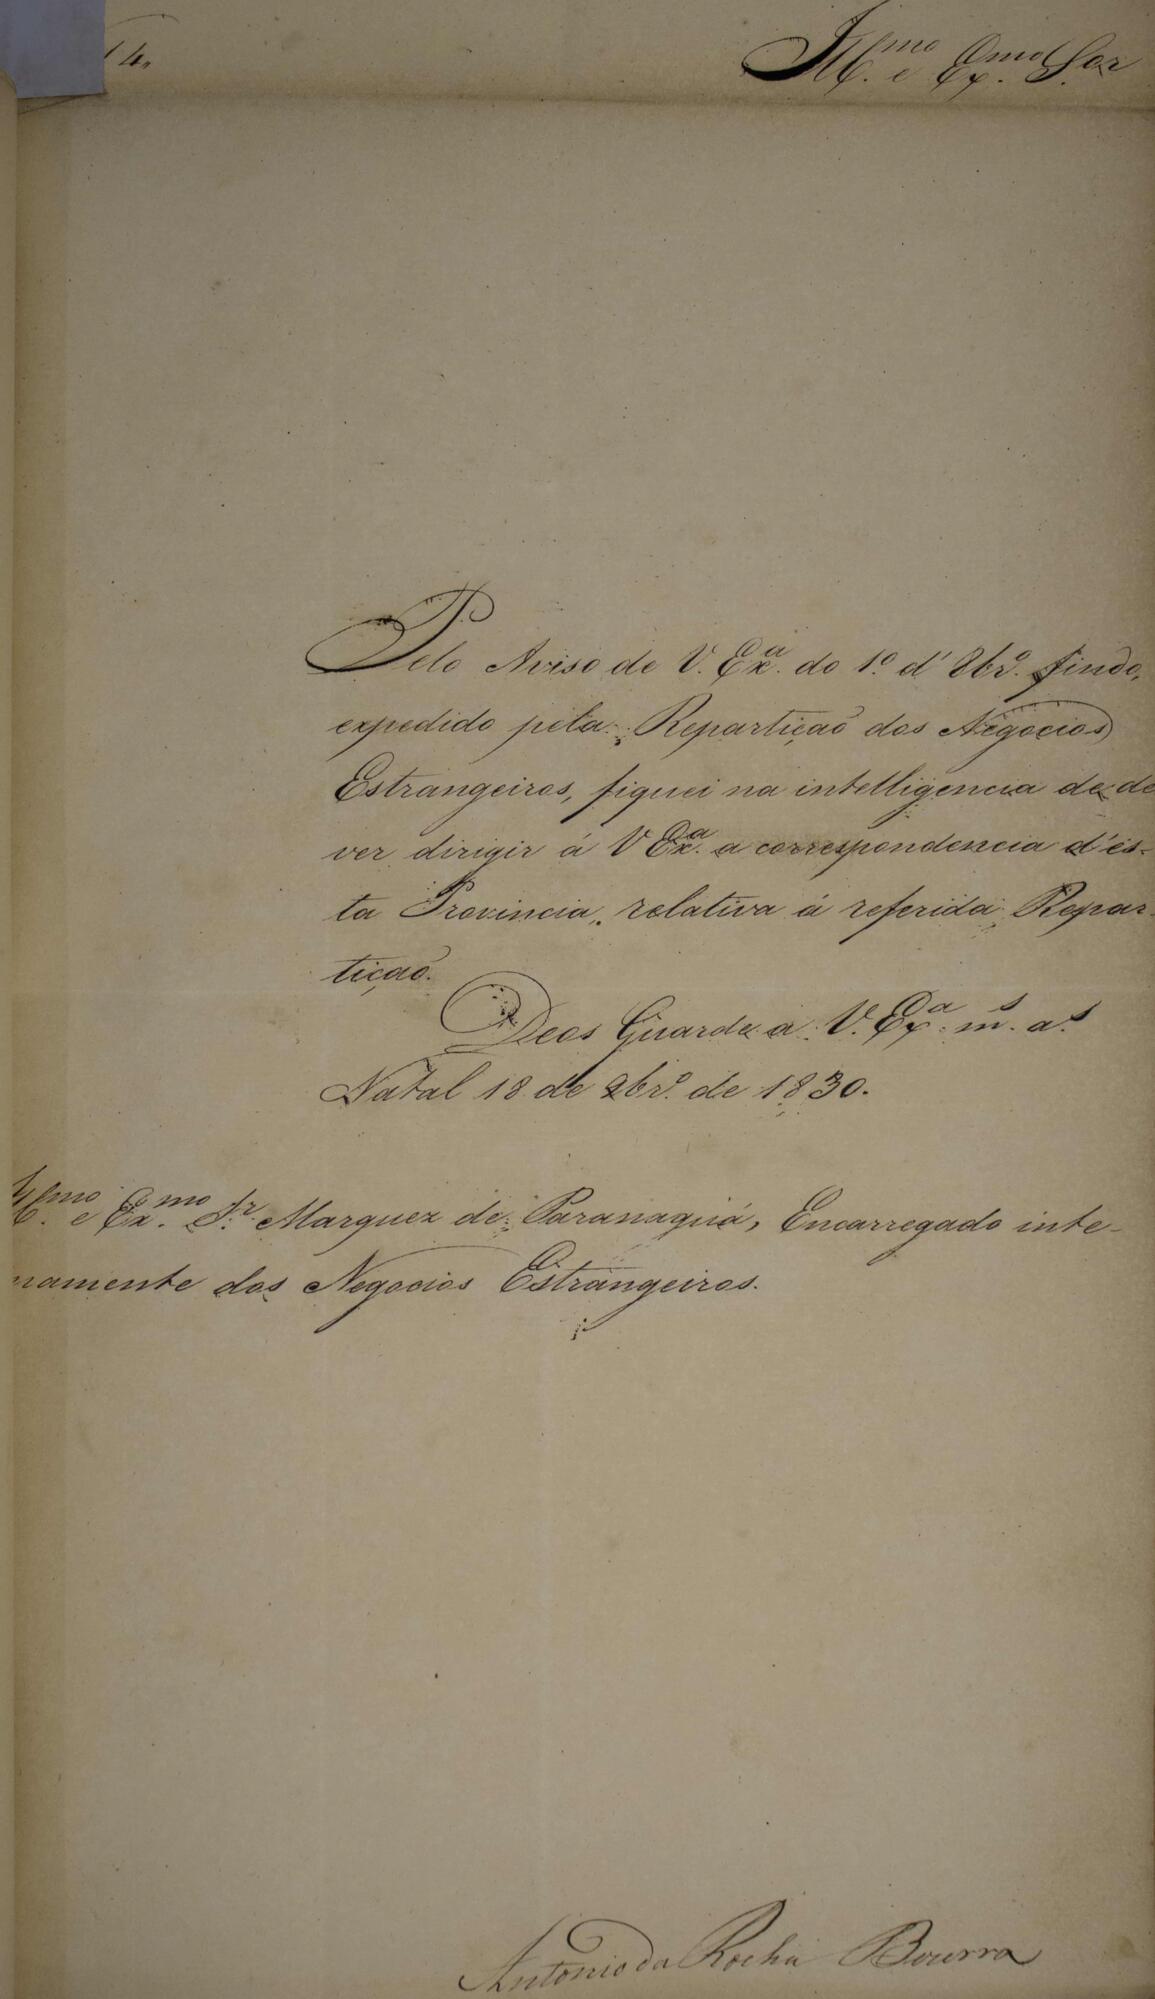 14.
Ill.mo e Ex.mo Snr
Pelo Aviso de V. Ex.a do 1.º d' 8br.º findo,
expedido pela Repartiçaõ dos Negocios
Estrangeiros, fiquei na intelligencia de de
ver dirigir á V Ex.a a correspondencia d'es-
ta Provincia, relativa á referida Repar-
tiçaõ.
Deos Guarde a V. Ex.a m.s a.s
Natal 18 de 9br.º de 1830.
Ill.mo e Ex.mo Sr. Marquez de Paranaguá, Encarregado inte-
namente dos Negocios Estrangeiros.
Antonio da Rocha Bezerra